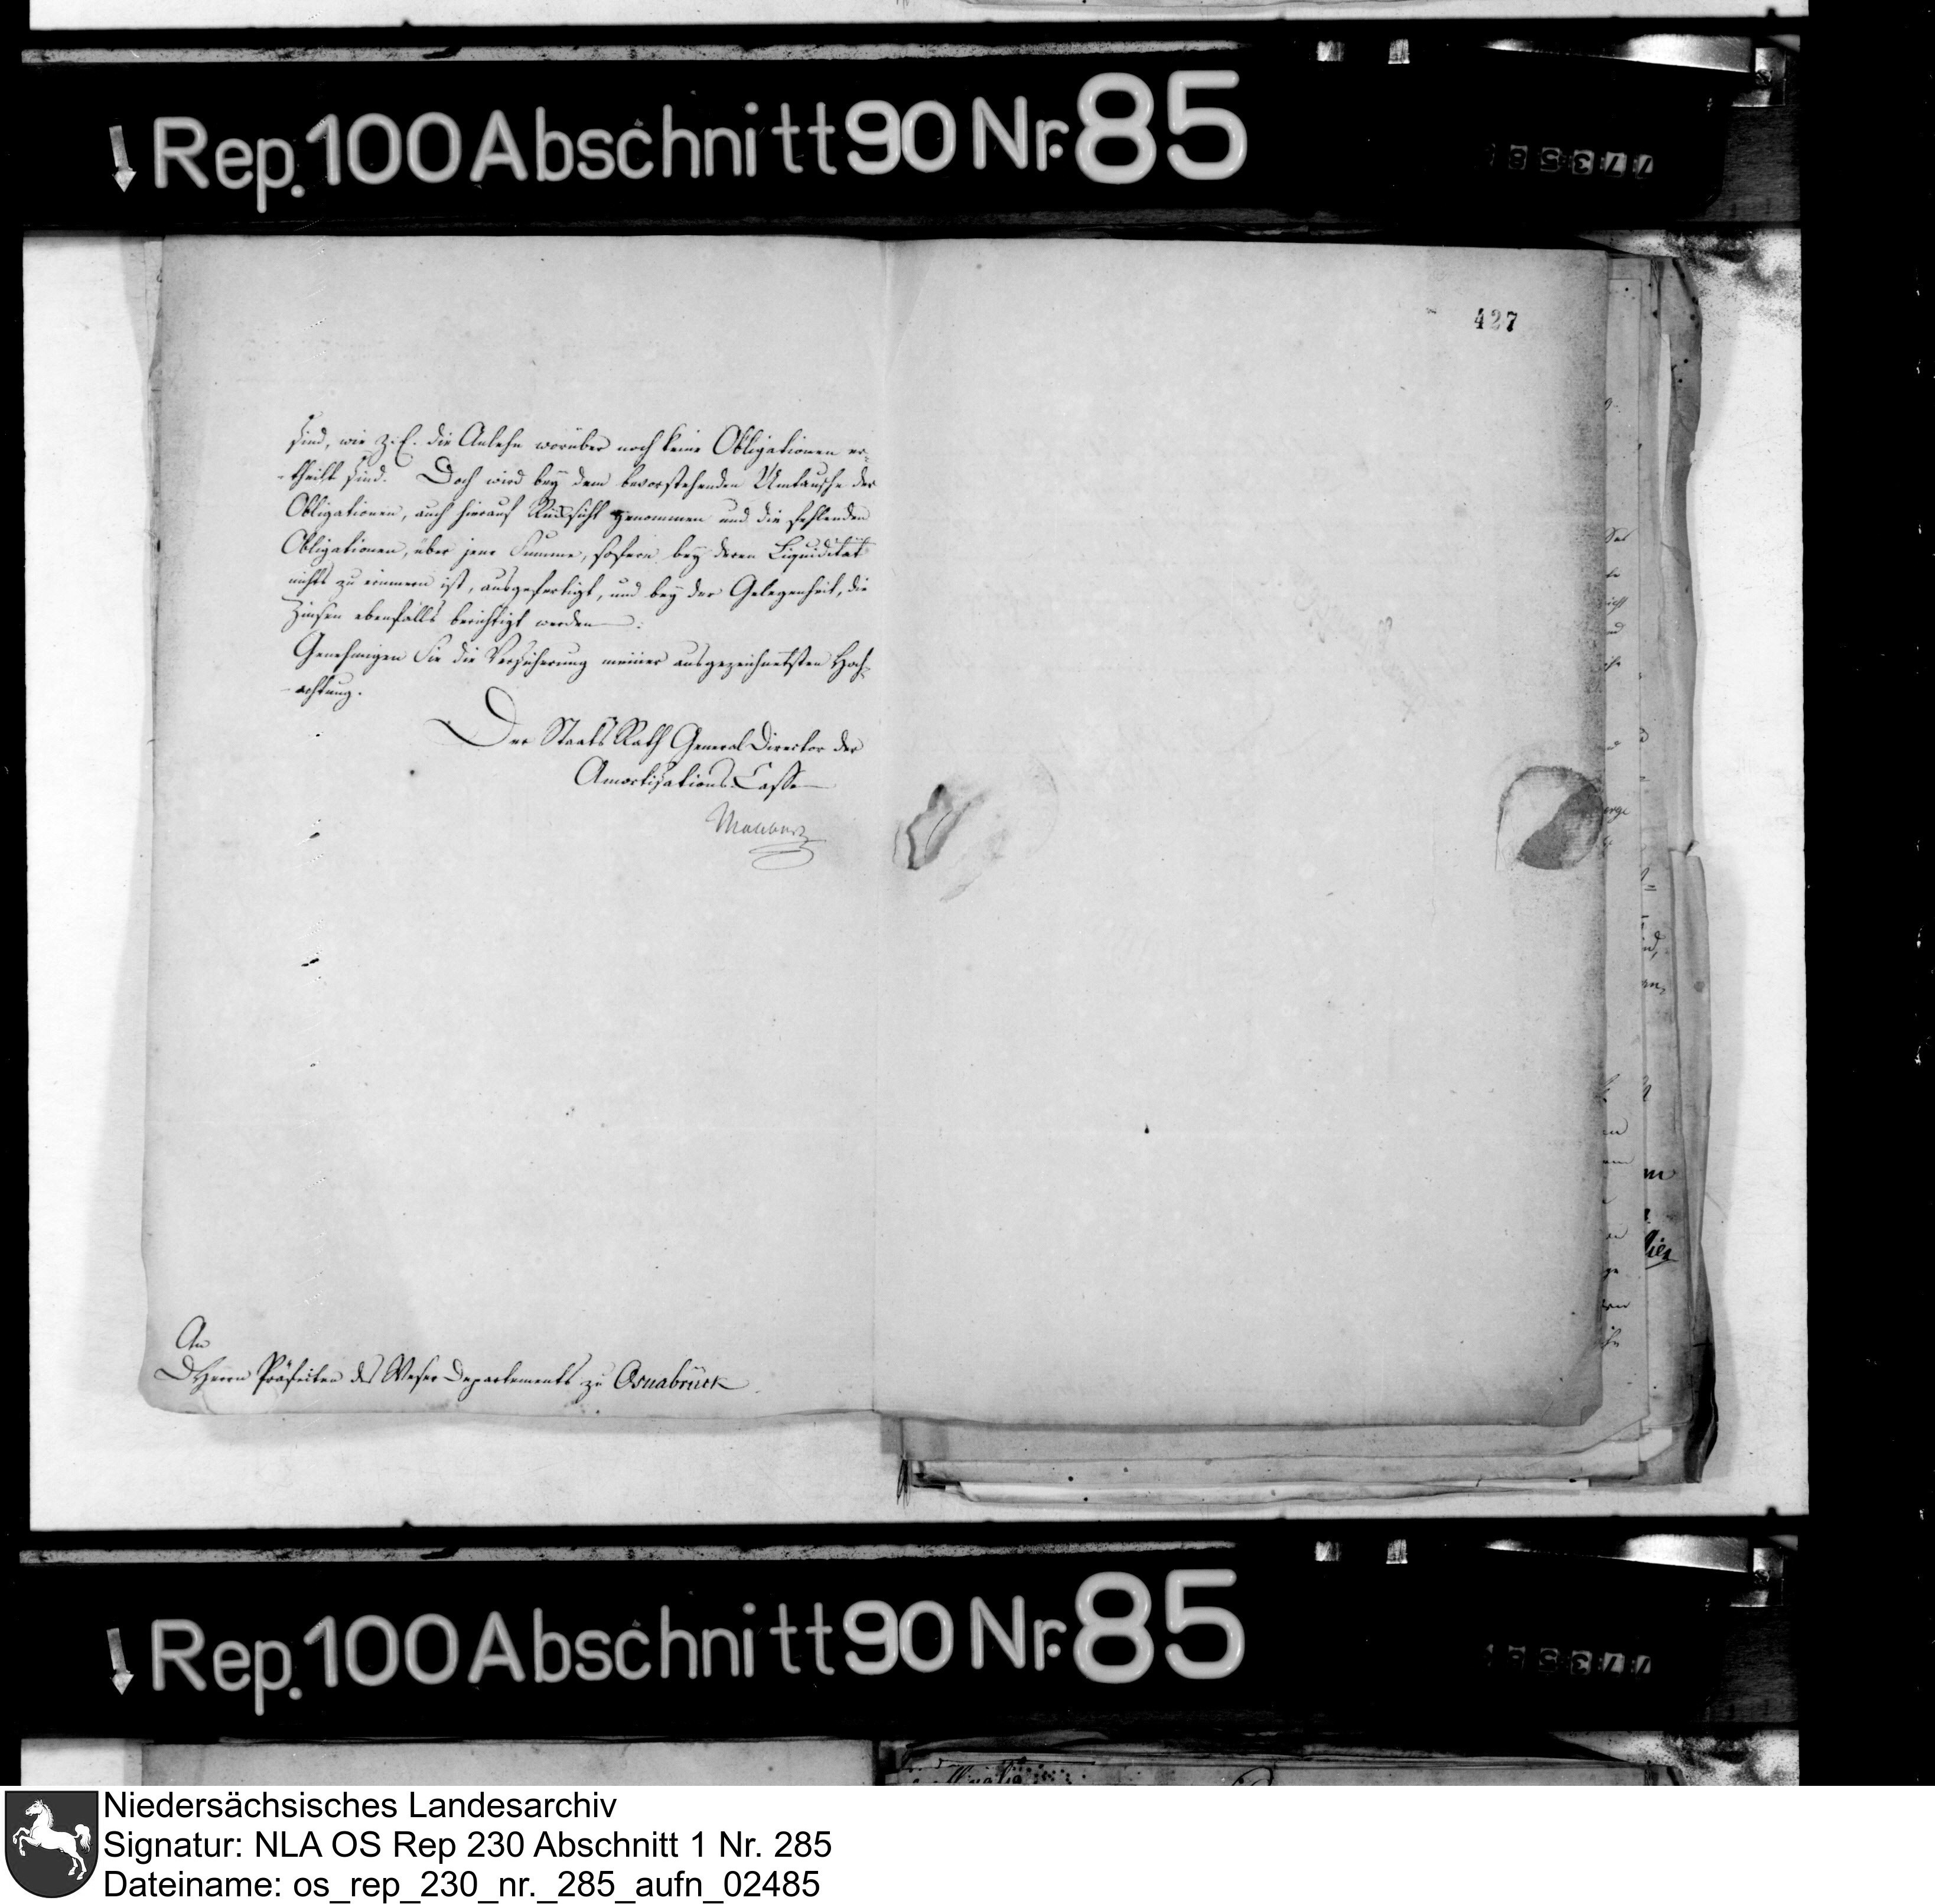 Rep. 100 Abschnitt 90 Nr. 85
427
sind, wie z. E. die Anlehn worüber noch keine Obligationen er-
-theilt sind. Doch wird bey dem bevorstehenden Umtausche der
Obligationen, auch hierauf Rücksicht genommen und die fehlenden
Obligationen, über jene Summe, sofern bey deren Liquidität
nichts zu erinnern ist, ausgefertigt, und bey der Gelegenheit, die
Zinsen ebenfalls berichtigt werden.
Genehmigen Sie die Versicherung meiner ausgezeichnetsten Hoch-
-achtung.
Der Staats Rath General Director der
Amortisations Casse
Malchus
An
D Herrn Präfecten des Weser Departements zu Osnabrück
Rep. 100 Abschnitt 90 Nr. 85
Niedersächsisches Landesarchiv
Signatur: NLA OS Rep 230 Abschnitt 1 Nr. 285
Dateiname: os_rep_230_nr._285_aufn_02485